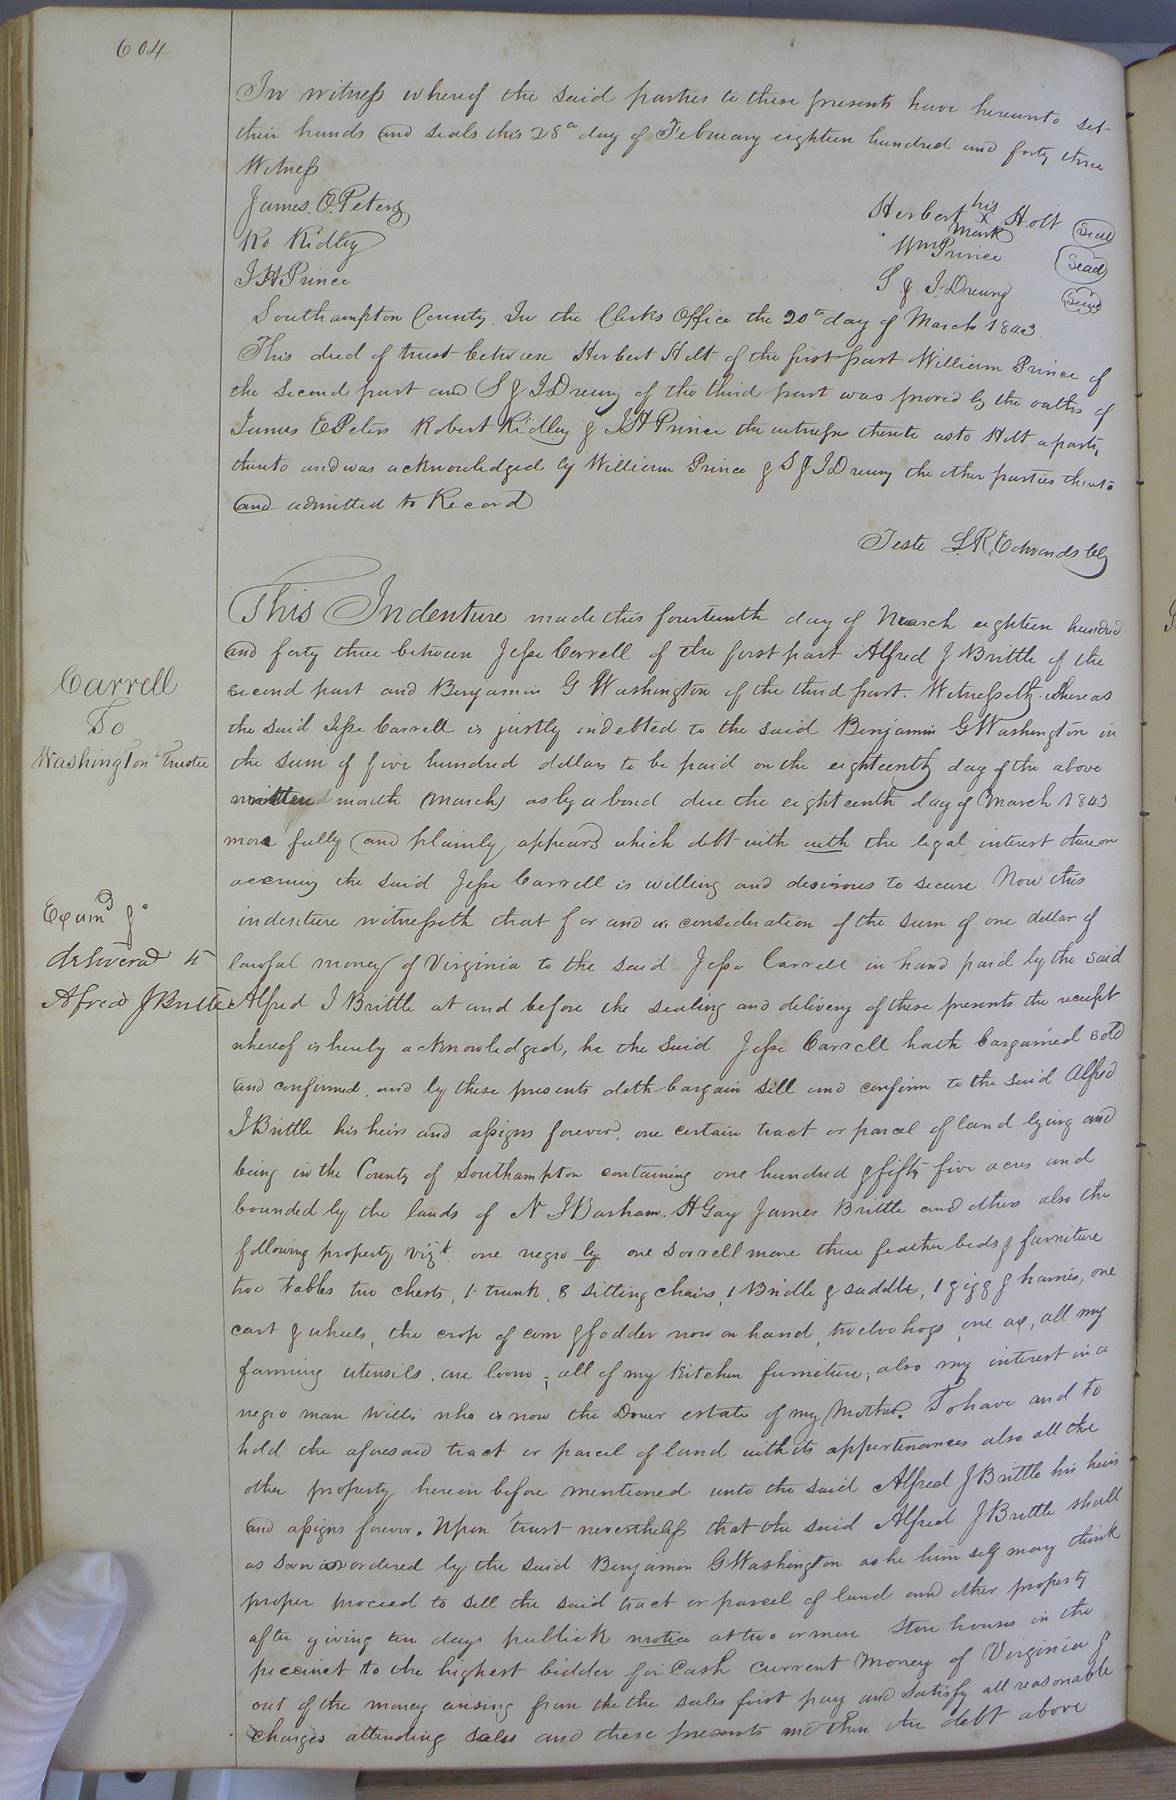 604
In witness whereof the said parties to these presents have hereunto set
their hands and seals this 28th day of February eighteen hundred and forty three
Witness
James. E. Peters
Ro Ridley
J H Prince
Herbert his X mark Holt Seal
Wm Prince Seal
S & J. Drewry Seal
Southampton County. In the Clerks Office the 20th day of March 1843
This deed of trust between Herbert Holt of the first part William Prince of
the second part and S & J Drewry of the third part was proved by the oaths of
James E Peters Robert Ridley & J H Prince the witnesses thereto as to Holt a party
thereto and was acknowledged by William Prince & S & J Drewry the other parties thereto
and admitted to Record
Teste L. R. Edwards Clk
Carrell
To
Washington's Trustee
This Indenture made this fourteenth day of March eighteen hundred
and forty three between Jesse Carrell of the first part Alfred J Brittle of the
second part and Benjamin G Washington of the third part. Witnesseth. whereas
the said Jesse Carrell is justly indebted to the said Benjamin G Washington in
the sum of five hundred dollars to be paid on the eighteenth day of the above
month (March) as by a bond due the eighteenth day of March 1843
more fully and plainly appears which debt with with the legal interest thereon
accruing the said Jesse Carrell is willing and desirous to secure Now this
indenture witnesseth that for and in consideration of the sum of one dollar of
lawful money of Virginia to the said Jesse Carrell in hand paid by the said
Examd &
delivered to
Alfred J Brittle
Alfred J Brittle at and before the sealing and delivery of these presents the receipt
whereof is hereby acknowledged, he the said Jesse Carrell hath bargained sold
and confirmed, and by these presents doth bargain sell and confirm to the said Alfred
J Brittle his heirs and assigns forever, one certain tract or parcel of land lying and
being in the County of Southampton containing one hundred & fifty five acres and
bounded by the lands of N J Barham. H Gay James Brittle and others also the
following property vizt. one negro by one sorrell mare three feather beds & furniture
two tables two chests, 1 trunk, 8 sitting chairs, 1 Bridle & saddle, 1 gigg & harness, one
cart & wheels, the crop of corn & fodder now on hand, twelve hogs, one ax, all my
farming utensils, one loom; all of my kitchen furniture; also my interest in a
negro man Willis who is now the Dower estate of my Mother. To have and to
hold the aforesaid tract or parcel of land with its appurtenances also all the
other property herein before mentioned unto the said Alfred J Brittle his heirs
and assigns forever. Upon trust nevertheless that the said Alfred J Brittle shall
as soon as ordered by the said Benjamin G Washington as he him self may think
proper proceed to sell the said tract or parcel of land and other property
after giving ten days publick notice at two or more store houses in the
precinct to the highest bidder for Cash current Money of Virginia &
out of the money arising from the the sales first pay and satisfy all reasonable
charges attending sales and these presents and then the debt above